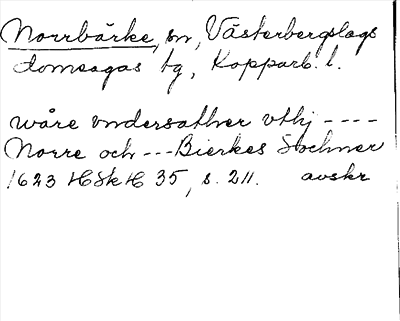 Norrbärke, sn, Västerbergslags
domsagas tg, Kopparb. l.
wåre vndersåther vthj ----
Norre och --- Bierkes Sochner
1623 HSkH 35, s. 211. avskr